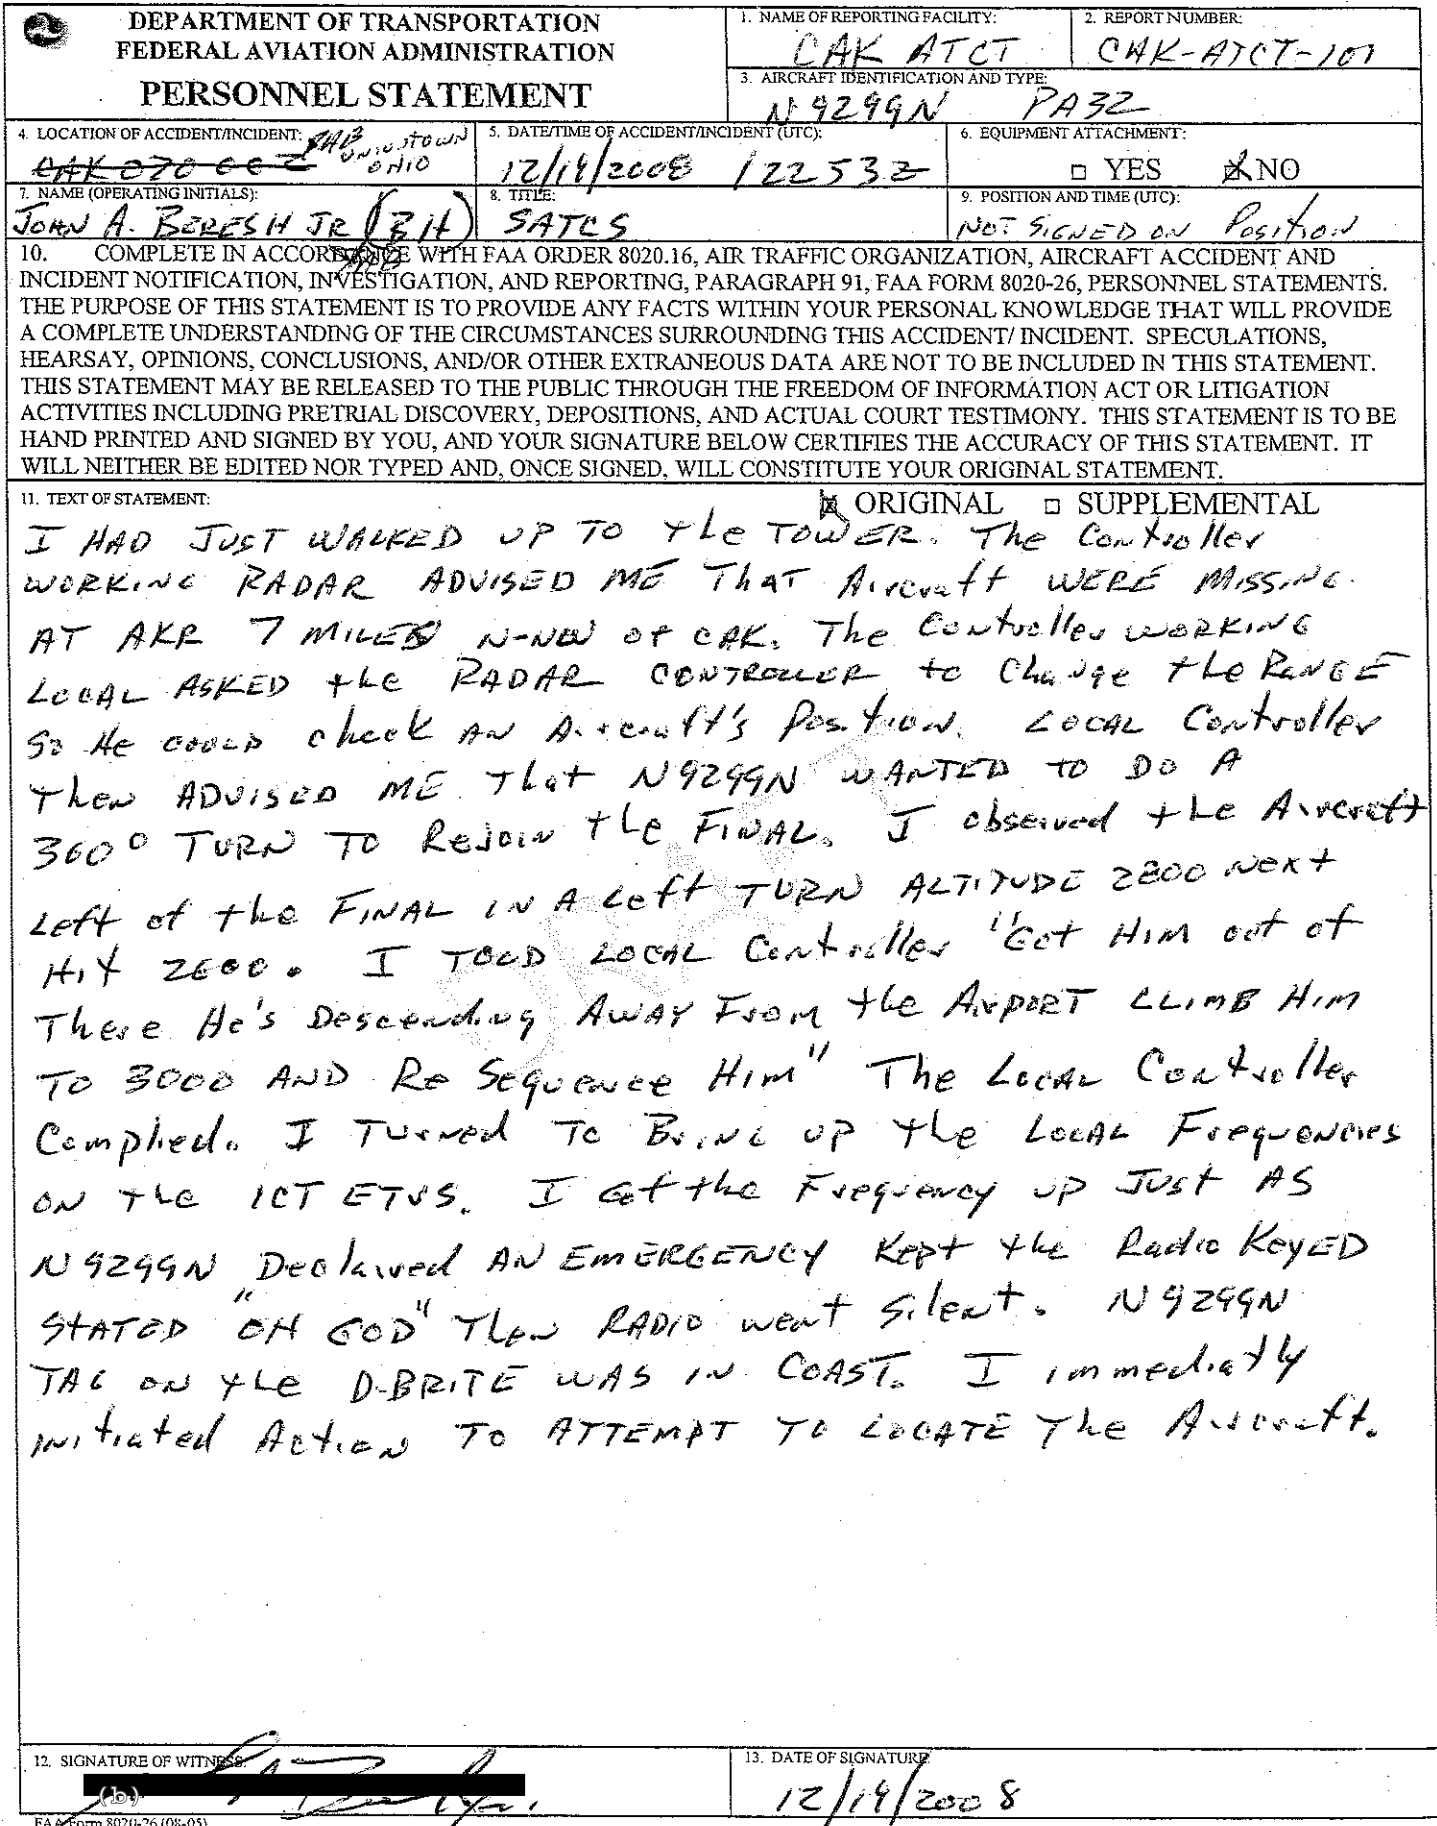 DEPARTMENT OF TRANSPORTATION
FEDERAL AVIATION ADMINISTRATION
PERSONNEL STATEMENT
1. NAME OF REPORTING FACILITY:
CAK ATCT
2. REPORT NUMBER:
CAK-ATCT-101
3. AIRCRAFT IDENTIFICATION AND TYPE:
N9299N PA32
4. LOCATION OF ACCIDENT/INCIDENT:
JAB UNIONTOWN
CAK 070 OHIO
5. DATE/TIME OF ACCIDENT/INCIDENT (UTC):
12/19/2008 / 22532
6. EQUIPMENT ATTACHMENT:
□ YES ☒ NO
7. NAME (OPERATING INITIALS):
JOHN A. BERESH JR (BH)
8. TITLE:
SATCS
9. POSITION AND TIME (UTC):
NOT SIGNED ON Position
10. COMPLETE IN ACCORDANCE WITH FAA ORDER 8020.16, AIR TRAFFIC ORGANIZATION, AIRCRAFT ACCIDENT AND
INCIDENT NOTIFICATION, INVESTIGATION, AND REPORTING, PARAGRAPH 91, FAA FORM 8020-26, PERSONNEL STATEMENTS.
THE PURPOSE OF THIS STATEMENT IS TO PROVIDE ANY FACTS WITHIN YOUR PERSONAL KNOWLEDGE THAT WILL PROVIDE
A COMPLETE UNDERSTANDING OF THE CIRCUMSTANCES SURROUNDING THIS ACCIDENT/ INCIDENT. SPECULATIONS,
HEARSAY, OPINIONS, CONCLUSIONS, AND/OR OTHER EXTRANEOUS DATA ARE NOT TO BE INCLUDED IN THIS STATEMENT.
THIS STATEMENT MAY BE RELEASED TO THE PUBLIC THROUGH THE FREEDOM OF INFORMATION ACT OR LITIGATION
ACTIVITIES INCLUDING PRETRIAL DISCOVERY, DEPOSITIONS, AND ACTUAL COURT TESTIMONY. THIS STATEMENT IS TO BE
HAND PRINTED AND SIGNED BY YOU, AND YOUR SIGNATURE BELOW CERTIFIES THE ACCURACY OF THIS STATEMENT. IT
WILL NEITHER BE EDITED NOR TYPED AND, ONCE SIGNED, WILL CONSTITUTE YOUR ORIGINAL STATEMENT.
11. TEXT OF STATEMENT: ☒ ORIGINAL □ SUPPLEMENTAL
I HAD JUST WALKED UP TO the TOWER. The Controller
WORKING RADAR ADVISED ME THAT Aircraft WERE MISSING.
AT AKR 7 MILES N-NW OF CAK. The Controller WORKING
LOCAL ASKED the RADAR CONTROLLER to Change the RANGE
SO HE COULD check AN Aircraft's Position. LOCAL Controller
Then ADVISED ME That N9299N WANTED TO DO A
360° TURN TO Rejoin the FINAL. I observed the Aircraft
Left of the FINAL IN A Left TURN ALTITUDE 2800 Next
Hit 2600. I TOLD LOCAL Controller "Get HIM out of
There He's Descending AWAY From the AirPORT CLIMB HIM
TO 3000 AND Re Sequence HIM" The LOCAL Controller
Complied. I Turned To Bring UP the LOCAL Frequencies
ON The ICT ETVS. I Got the Frequency UP Just AS
N9299N Declared AN EMERGENCY Kept the Radio KEYED
STATED "OH GOD" Then RADIO went Silent. N9299N
TAG ON the D-BRITE WAS IN COAST. I immediatly
initiated Action TO ATTEMPT TO LOCATE The Aircraft.
12. SIGNATURE OF WITNESS:
(b)
13. DATE OF SIGNATURE
12/19/2008
FAA Form 8020-26 (08-05)